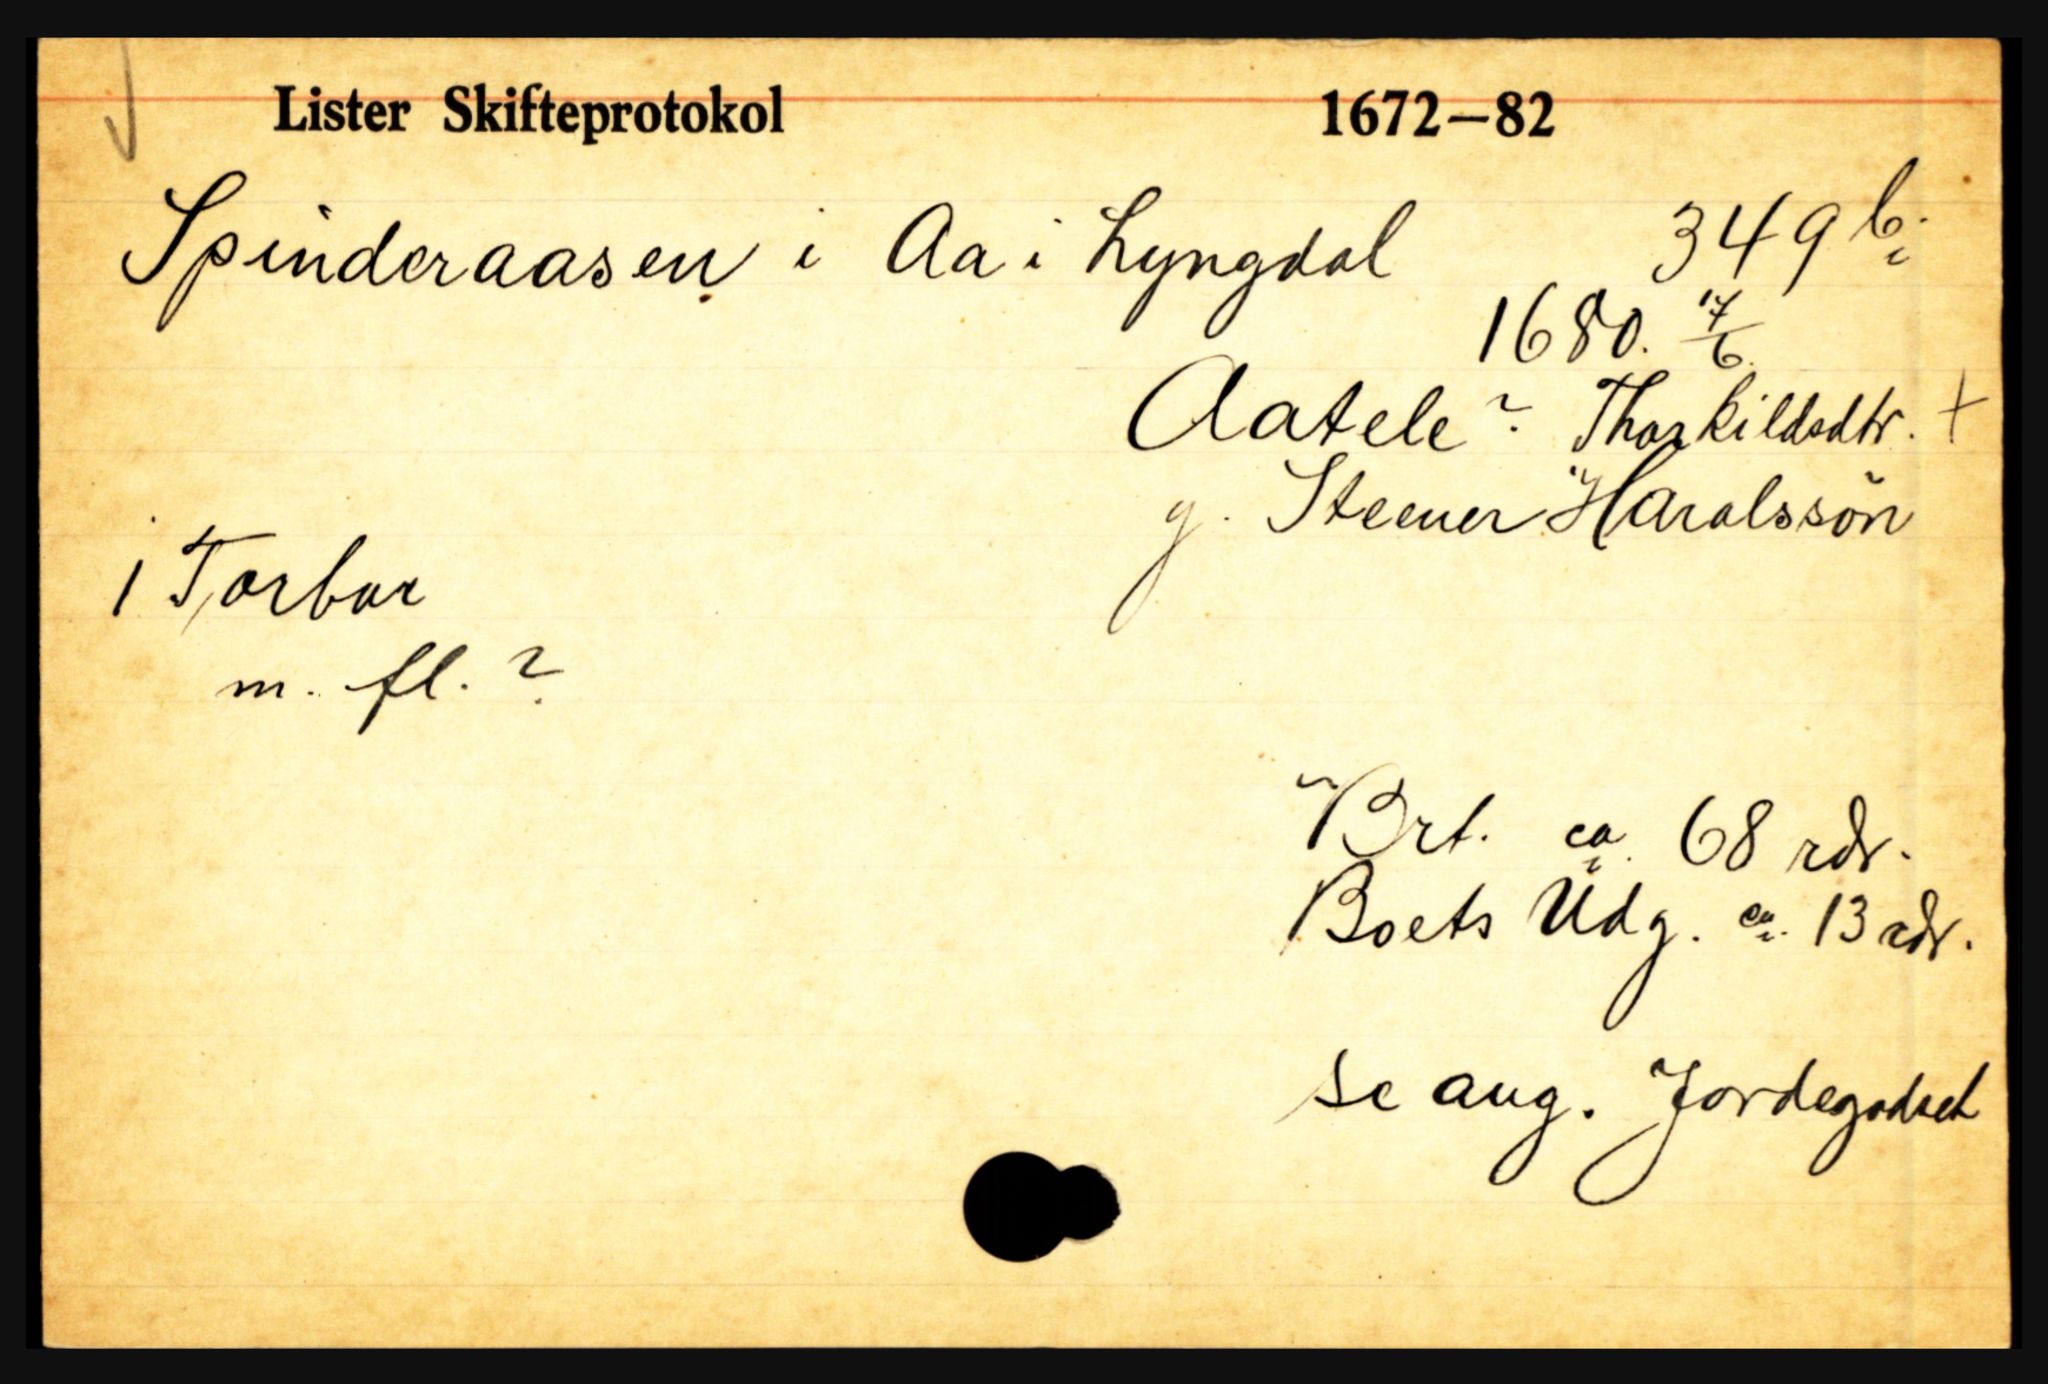 Lister Skifteprotokol 1672—82
Spinderaasen i Aa i Lyngdal 349 b.
1680. 17/6.
Aatele? Thorkildsdtr. +
g. Steener Haralssön
1 Torbor
m. fl. ?
Brt. ca. 68 rdr.
Boets Udg. ca. 13 rdr.
se ang. Jordegodset